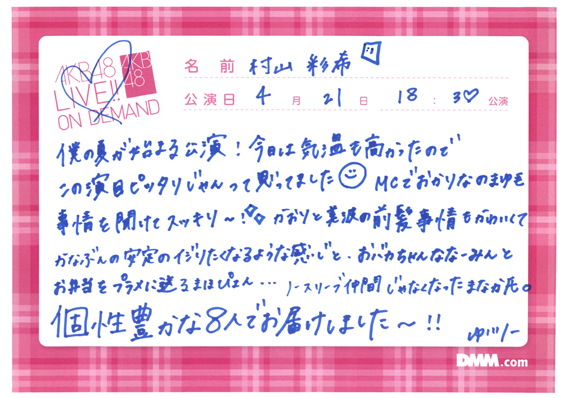 AKB48
LIVE!!
ON DEMAND
AKB
48
名前 村山 彩希
公演日 4月21日 18:30公演
僕の夏が始まる公演!今日は気温も高かったので
この演目ピッタリじゃんって思ってました MCでおかりなのまゆ毛
事情を聞けてスッキリ〜! かおりと美波の前髪事情もかわいくて
かなぶんの安定のイジりたくなるような感じと、おバカちゃんななーみんと
お弁当をプラメに送るまほぴょん… ノースリーブ仲間じゃなくなったまなか氏。
個性豊かな8人でお届けしました〜!!
ゆいりー
DMM.com